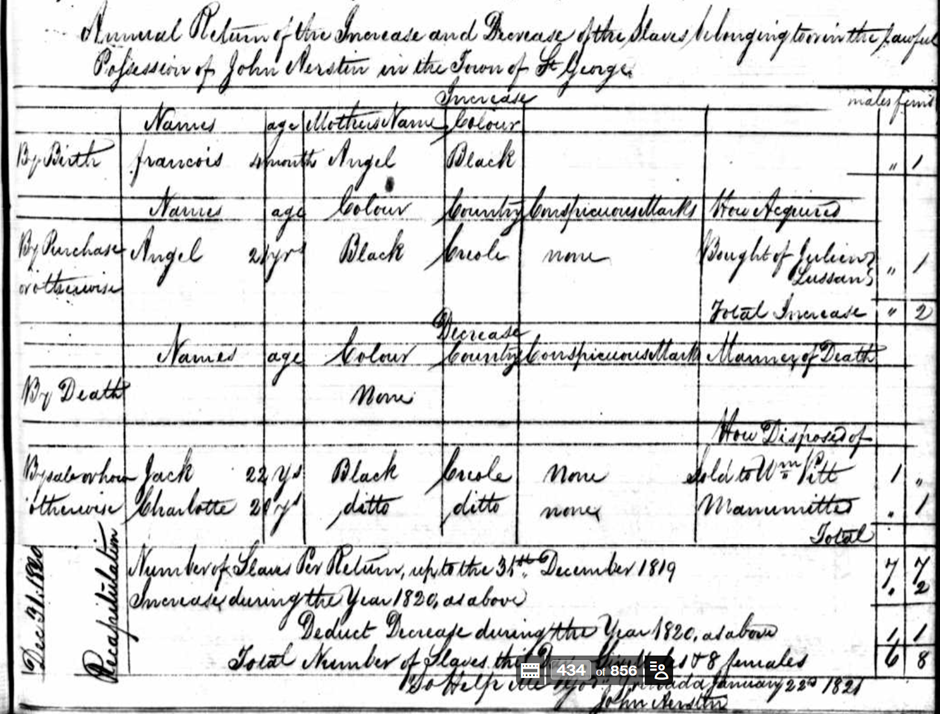 Annual Return of the Increase and Decrease of the Slaves belonging to or in the Lawful
Possession of John Nerstin in the Town of St. George
Increase
males fem
Names age Mothers Name Colour
By Birth francois 4 month Angel Black " 1
Names age Colour Country Conspicuous Marks How Acquired
By Purchase Angel yrs Black Creole none Bought of Julien " 1
or otherwise Lussan
Total Increase " 2
Decrease
Names age Colour Country Conspicuous Mark Manner of Death
By Death None
How Disposed of
By sale or how Jack 22 Ys Black Creole None Sold to Wm Pitt 1 "
otherwise Charlotte ys ditto ditto none Manumitted " 1
Total
Dec 31. 1820
Recapitulation
Number of Slaves Per Return, up to the 31st December 1819 7 7
Increase during the Year 1820, as above " 2
Deduct Decrease during the Year 1820, as above 1 1
Total Number of Slaves this & 8 females 6 8
434 of 856
So Help me Grenada January 22nd 1821
John Nerstin